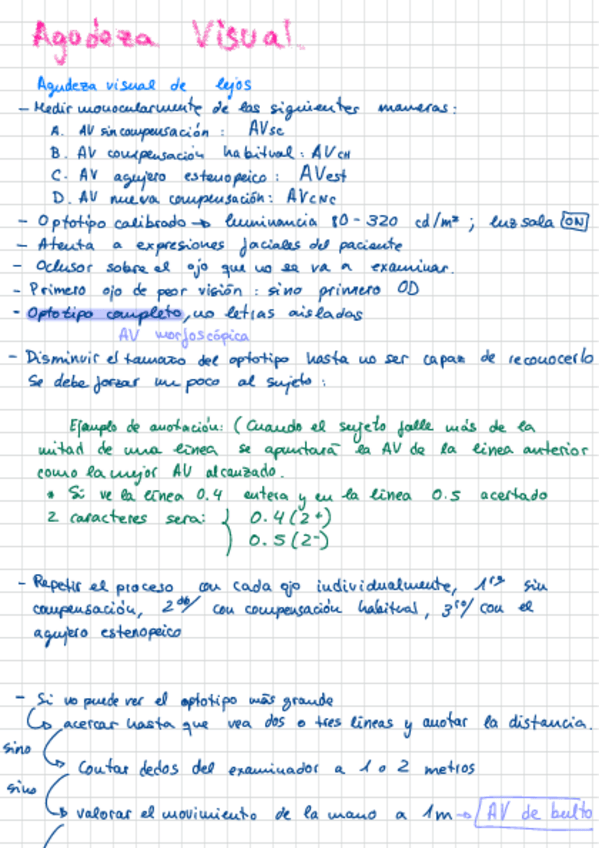 Agudeza Visual.
Agudeza visual de lejos
- Medir monocularmente de las siguientes maneras:
A. AV sin compensación : AVsc
B. AV compensación habitual : AVCH
C. AV agujero estenopeico : AVest
D. AV nueva compensación: AVCNC
- Optotipo calibrado → luminancia 80-320 cd/m² ; luz sala ON
- Atenta a expresiones faciales del paciente
- Oclusor sobre el ojo que no se va a examinar.
- Primero ojo de peor visión : sino primero OD
- Optotipo completo, no letras aisladas
AV morfoscópica
- Disminuir el tamaño del optotipo hasta no ser capaz de reconocerlo
Se debe forzar un poco al sujeto :
Ejemplo de anotación: (Cuando el sujeto falle más de la
mitad de una línea se apuntará la AV de la línea anterior
como la mejor AV alcanzado.
* Si ve la línea 0.4 entera y en la línea 0.5 acertado
2 caracteres sera: { 0.4 (2+)
0.5 (2-)
- Repetir el proceso con cada ojo individualmente, 1ro sin
compensación, 2do/ con compensación habitual, 3ro/ con el
agujero estenopeico
- Si no puede ver el optotipo más grande
↳ acercar hasta que vea dos o tres líneas y anotar la distancia.
sino
↳ Contar dedos del examinador a 1 o 2 metros
sino
↳ valorar el movimiento de la mano a 1m → AV de bulto